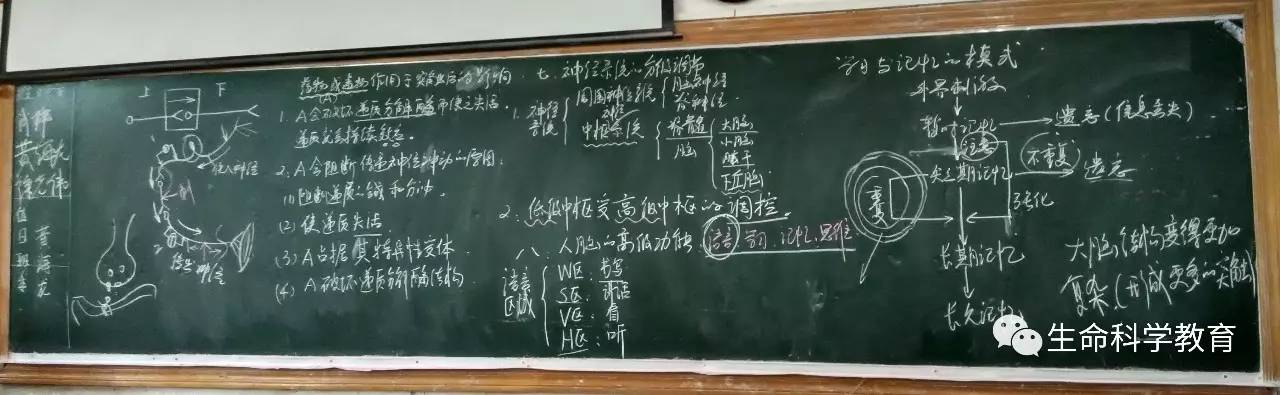 上 下
药物或毒物作用于突触后的影响
(A)
1. A会破坏递质分解酶而使之失活,
递质完会持续
2. A会阻断传递神经冲动的原因:
(1) 阻断递质的合成和分泌.
(2) 使递质失活
(3) A占据其特异性受体
(4) A破坏递质分解酶结构
七、神经系统的分级调节
1. 神经系统
周围神经系统
脑神经
脊神经.
中枢系统
脊髓
脑
大脑
小脑
脑干
下丘脑
2. 低级中枢受高级中枢的调控.
八、人脑的高级功能
语言 学习、记忆、思维.
语言区域
W区: 书写
S区: 讲话
V区: 看
H区: 听
学习与记忆的模式
外界刺激
暂时记忆 遗忘 (信息丢失)
注意
短期记忆 (不重复) 遗忘
重复
强化
长期记忆
长久记忆
大脑结构变得更加
复杂. (形成更多的突触)
值日班长
生命科学教育